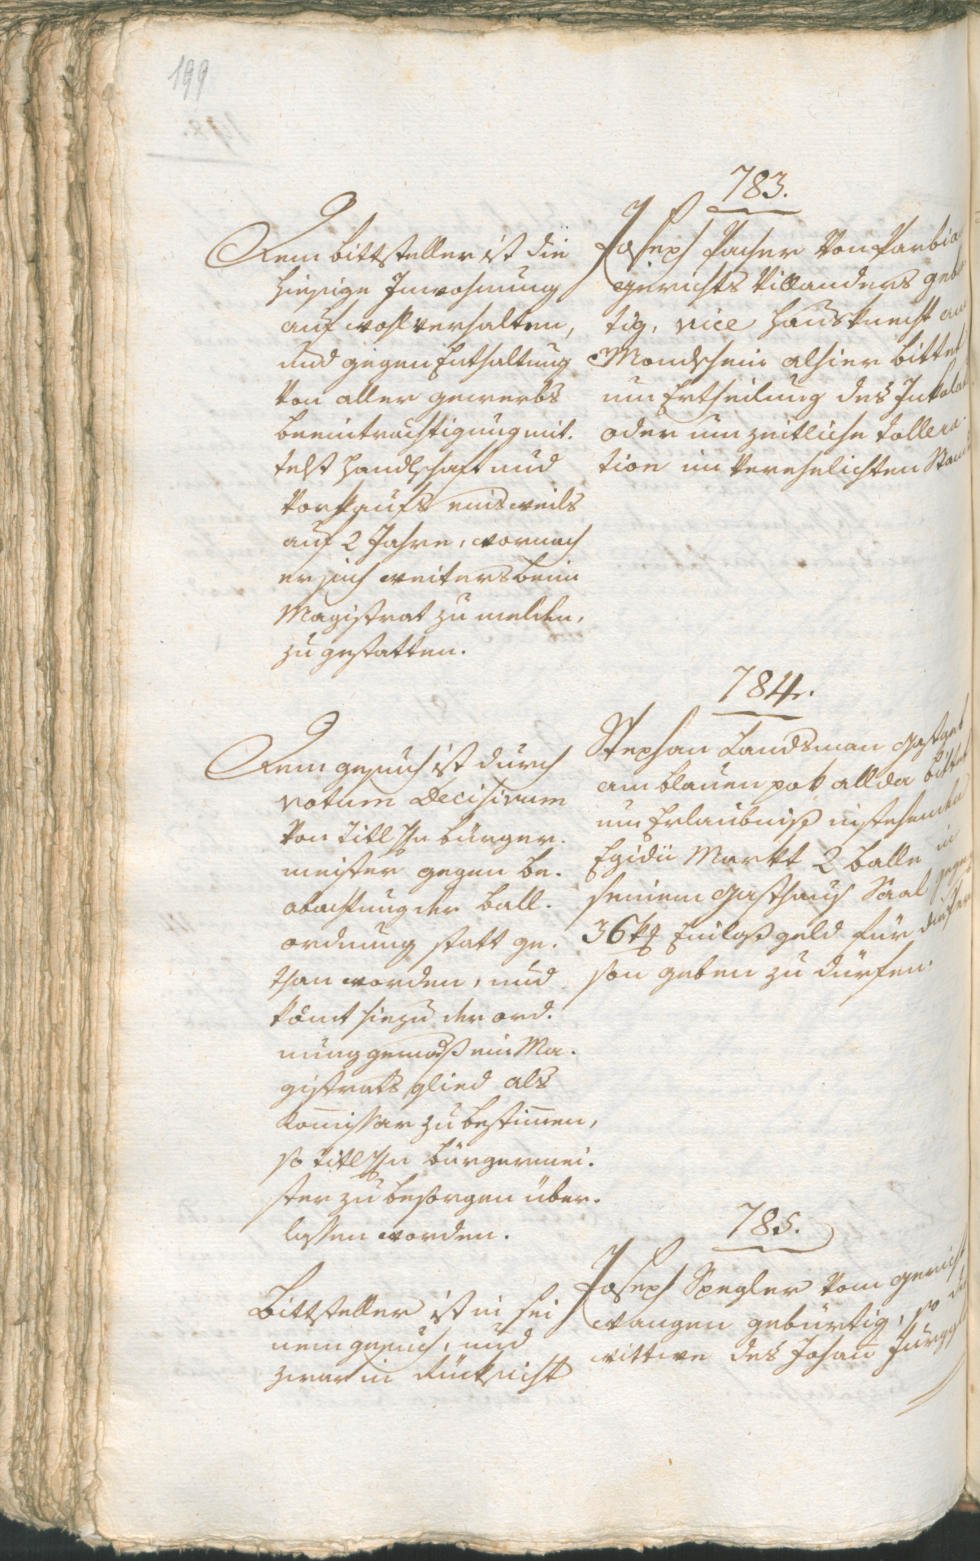 199
783.
Joseph Pacher von Barbia
gerichts Villanders gebür
tig, vice Hausknecht am
Mondschein alhier bittet
um Ertheilung des Inkolat
oder um zeitliche Tollera-
tion im verehelichten Stand
Dem bittsteller ist die
hiesige Inwohnung
auf wohlverhalten,
und gegen Enthaltung
von aller gewerbs
beeinträchtigung mit.
telst Handlschaft und
Vorkaufs einsweils
auf 2 Jahre, wornach
er sich weiters beim
Magistrat zu melden,
zu gestatten.
784.
Stephan Landsman Gastgeb
am blauen pok allda bittet
um Erlaubniß instehenden
Egidii Markt 2 balle in
seinem Gasthaus Saal gegen
36 kr Einlaßgeld für die Per
son geben zu dürfen.
Dem gesuch ist durch
votum Decisivum
von Titl Hn bürger.
meister gegen be.
obachtung der ball.
ordnung statt ge.
than worden, und
kömt hiezu der ord.
nung gemäß ein Ma.
gistrats glied als
Komissar zu bestimen,
so Titl Hn bürgermei.
ster zu besorgen über.
lassen worden.
785.
Joseph Spegler vom gericht
wangen gebürtig, so die
wittwe des Johan
Bittsteller ist in sei
nem gesuch, und
zwar in Rücksicht